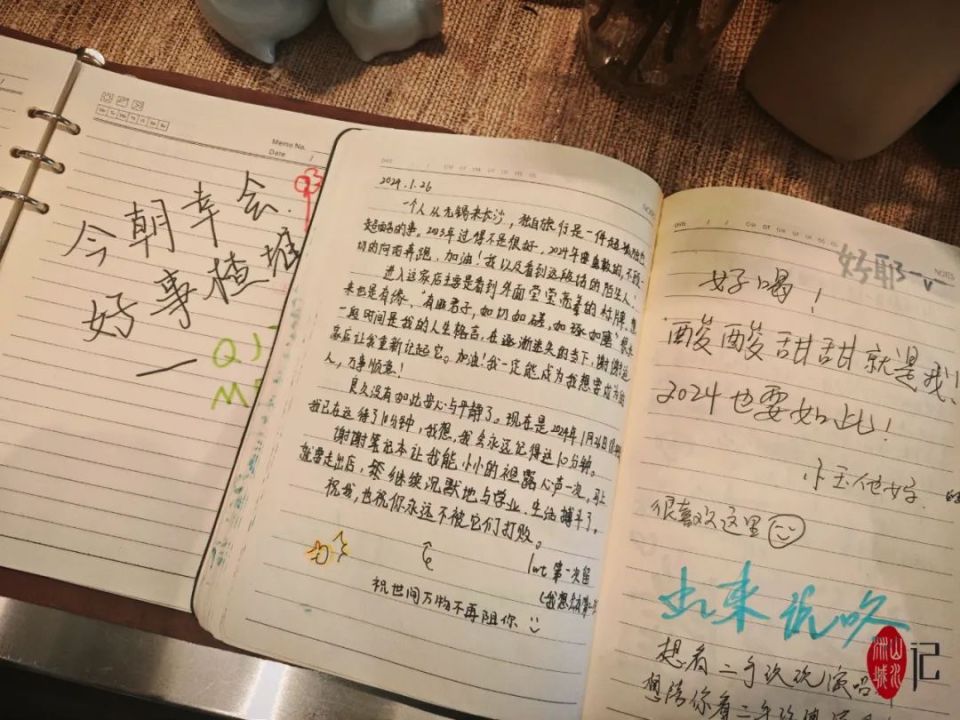 Memo No.
Date /
今朝幸会.
好事楂堆
—
2024.1.26
一个人从无锡来长沙，独自旅行是一件
的事。2023年过得不是很好，2024年
的向前奔跑，加油！我以及看到这段话的陌生人！
进入这家店主要是看到外面堂堂亮着的标牌，想
来也是有缘，有匪君子，如切如磋，如琢如磨
一段时间是我的人生格言，在逐渐迷失的当下，谢谢这
家店让我重新记起它。加油！我一定能成为我想要成为的
人，万事顺意！
良久没有如此安心与平静了。现在是2024年1月26日
我已在这待了10分钟，我想，我会永远记得这10分钟。
谢谢笔记本让我能小小的袒露心声一次，马上
就要走出店，继续沉默地与学业、生活搏斗了。
祝我，也祝你永远不被它们打败。
第一次留
祝世间万物不再阻你
NOTES
好耶
好喝！
酸酸甜甜就是我！
2024也要如此！
很喜欢这里
出来说咯
想看二手玫瑰演唱
想陪你看二手玫瑰
山水洲城
记